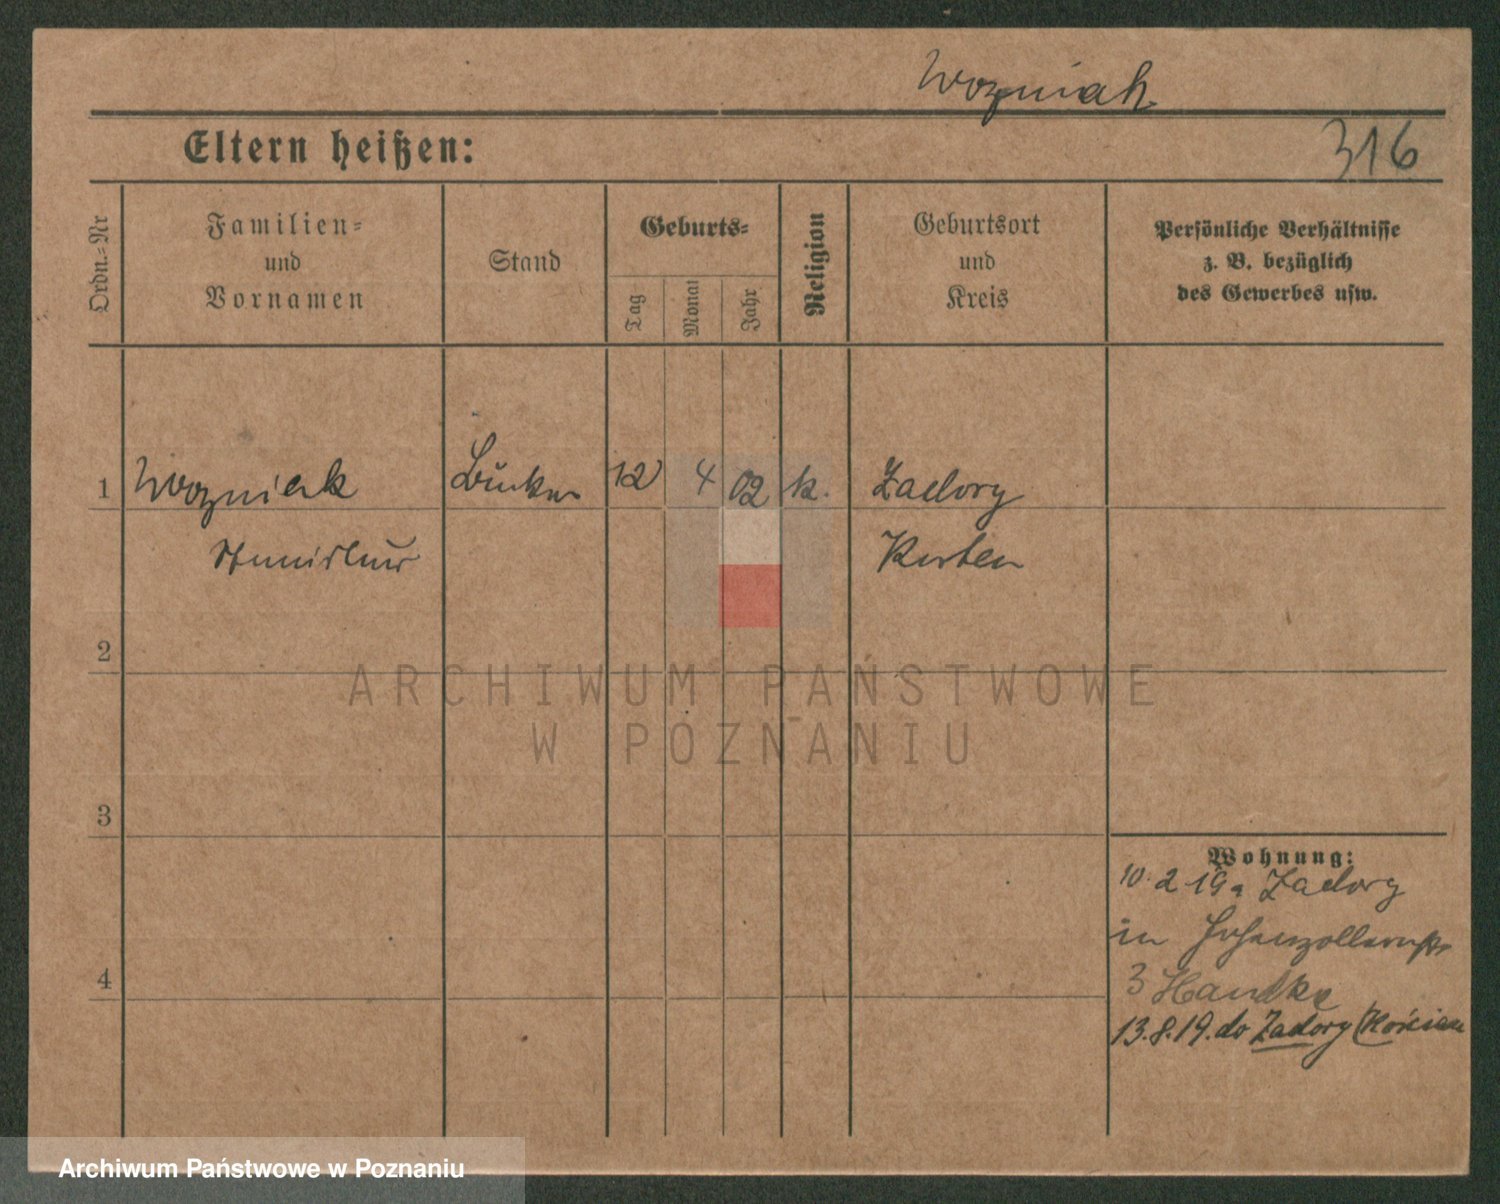 Wozniak
Eltern heißen:
316
Ordn.-Nr
Familien-
und
Vornamen
Stand
Geburts-
Tag
Monat
Jahr
Religion
Geburtsort
und
Kreis
Persönliche Verhältnisse
z. B. bezüglich
des Gewerbes usw.
1 Wozniak 12 4 02 k. Zadory
Stanislaus Kosten
2
3
4
Wohnung:
10. 2 19 a Zadory
in Hohenzollernstr
3 Handke
13.8.19. do Zadory (Kościan
ARCHIWUM PAŃSTWOWE
W POZNANIU
Archiwum Państwowe w Poznaniu